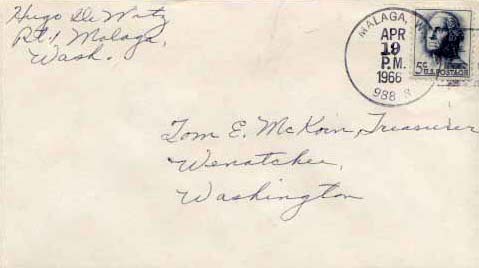 Hugo DeWitz
Rt. 1 Malaga,
Wash.
MALAGA, W
APR
19
P.M.
1966
988 8
5¢ U.S. POSTAGE
Tom E. McKoin, Treasurer
Wenatchee,
Washington